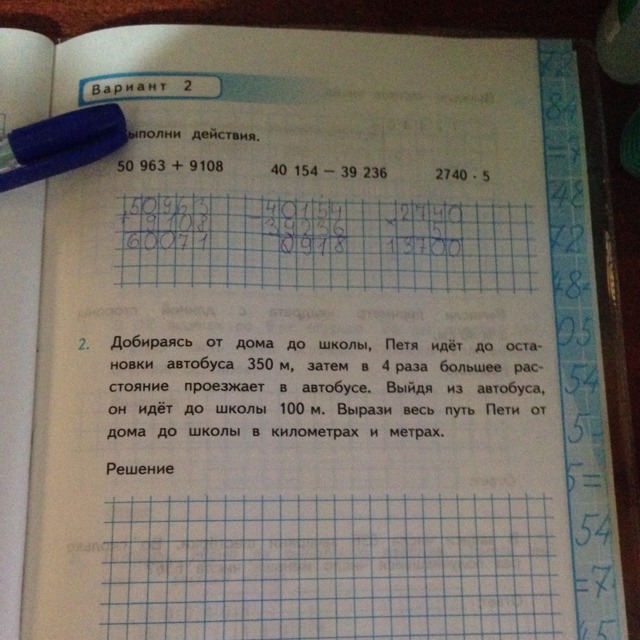 Вариант 2
ыполни действия.
50 963 + 9108 40 154 − 39 236 2740 · 5
50963 40154 2740
+ 9108 − 39236 5
60071 0918 13700
2. Добираясь от дома до школы, Петя идёт до оста-
новки автобуса 350 м, затем в 4 раза большее рас-
стояние проезжает в автобусе. Выйдя из автобуса,
он идёт до школы 100 м. Вырази весь путь Пети от
дома до школы в километрах и метрах.
Решение
84
48
72
84
05
54
5
5=
54
=7
45